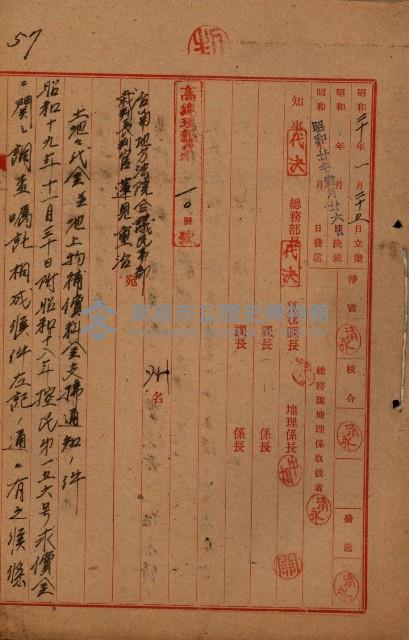 57
昭和二十年一月二十五日立案
昭和 年 月 日決裁
昭和 年 月 日發送
昭和廿年壹月廿六日
淨書 清永
校合 清永
發送 清永
總務課地理係取扱者 清永
知事 代決
總務部長 代決
課長
地理係長
課長 係長
課長 係長
一〇號
台南地方法院合議民事部
裁判長判官 蓮見重治 宛
名
土地代金並地上物補償料金支拂通知ノ件
昭和十九年十一月三十日附昭和十八年控民第一五六號求償金
ニ關シ調査囑託相成候件左記ノ通ニ有之候條
高雄市立歷史博物館